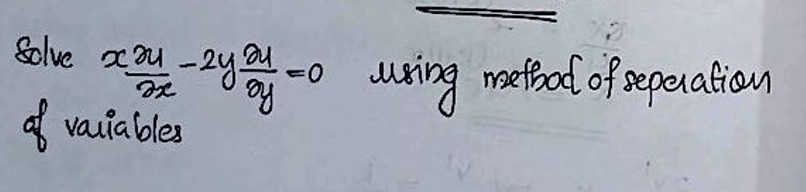 Solve x ∂u/∂x - 2y ∂u/∂y = 0 using method of seperation
of variables